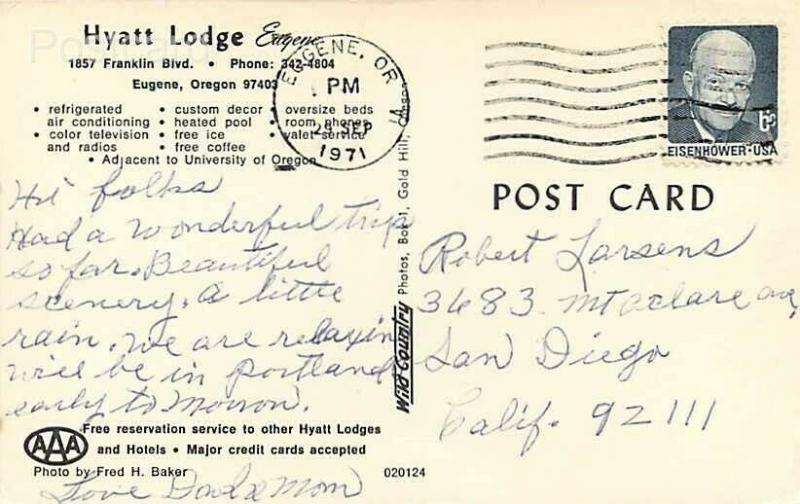 Hyatt Lodge Eugene
1857 Franklin Blvd. • Phone: 342-4804
Eugene, Oregon 97403
• refrigerated air conditioning
• color television and radios
• custom decor
• heated pool
• free ice
• free coffee
• oversize beds
• room phones
• valet service
• Adjacent to University of Oregon
EUGENE, OR
PM
28 SEP
1971
EISENHOWER·USA
6c
POST CARD
Hi folks
Had a wonderful trip
so far. Beautiful
scenery. A little
rain. We are relaxin
will be in Portland
early to morrow.
Love Dad & Mom
Robert Larsens
3683 Mt aclare ave,
San Diego
Calif. 92111
Wild Country Photos, Box 1, Gold Hill, Oregon
AAA
Free reservation service to other Hyatt Lodges
and Hotels • Major credit cards accepted
Photo by Fred H. Baker
020124